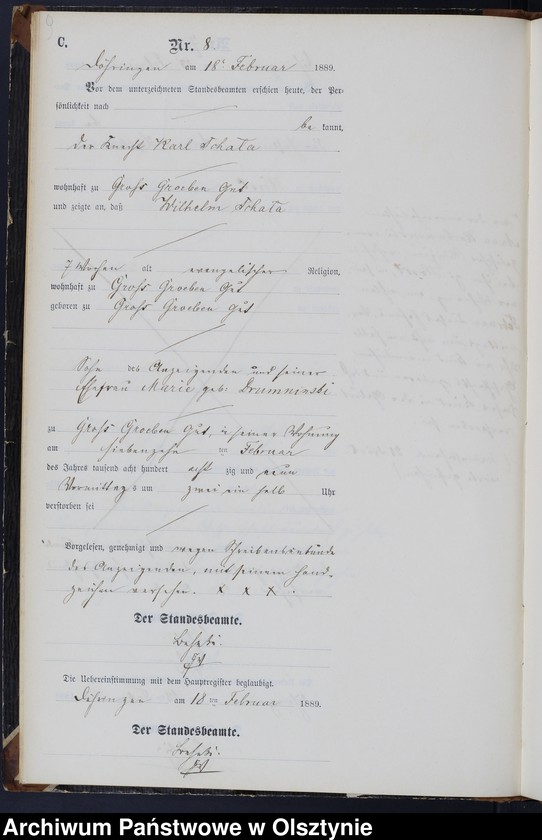 C.
Nr. 8
Döhringen am 18t Februar 1889.
Vor dem unterzeichneten Standesbeamten erschien heute, der Per-
sönlichkeit nach
be kannt,
der Knecht Karl Schata
wohnhaft zu Groß Groeben Gut
und zeigte an, daß Wilhelm Schata
7 Wochen alt evangelischer Religion,
wohnhaft zu Groß Groeben Gut
geboren zu Groß Groeben Gut
Sohn des Anzeigenden und seiner
Ehefrau Marie geb:
zu Groß Groeben Gut, in seiner Wohnung
am siebenzehn ten Februar
des Jahres tausend acht hundert acht zig und neun
Vormittags um zwei ein halb Uhr
verstorben sei
Vorgelesen, genehmigt und wegen Schreibensunkunde
des Anzeigenden, mit seinem Hand-
zeichen versehen. x x x.
Der Standesbeamte.
Die Uebereinstimmung mit dem Hauptregister beglaubigt.
Döhringen am 18 ten Februar 1889.
Der Standesbeamte.
Archiwum Państwowe w Olsztynie